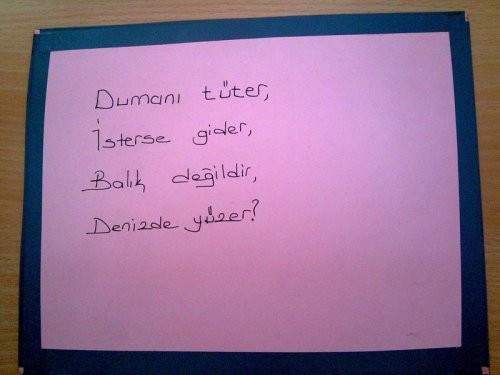 Dumanı tüter,
İsterse gider,
Balık değildir,
Denizde yüzer?